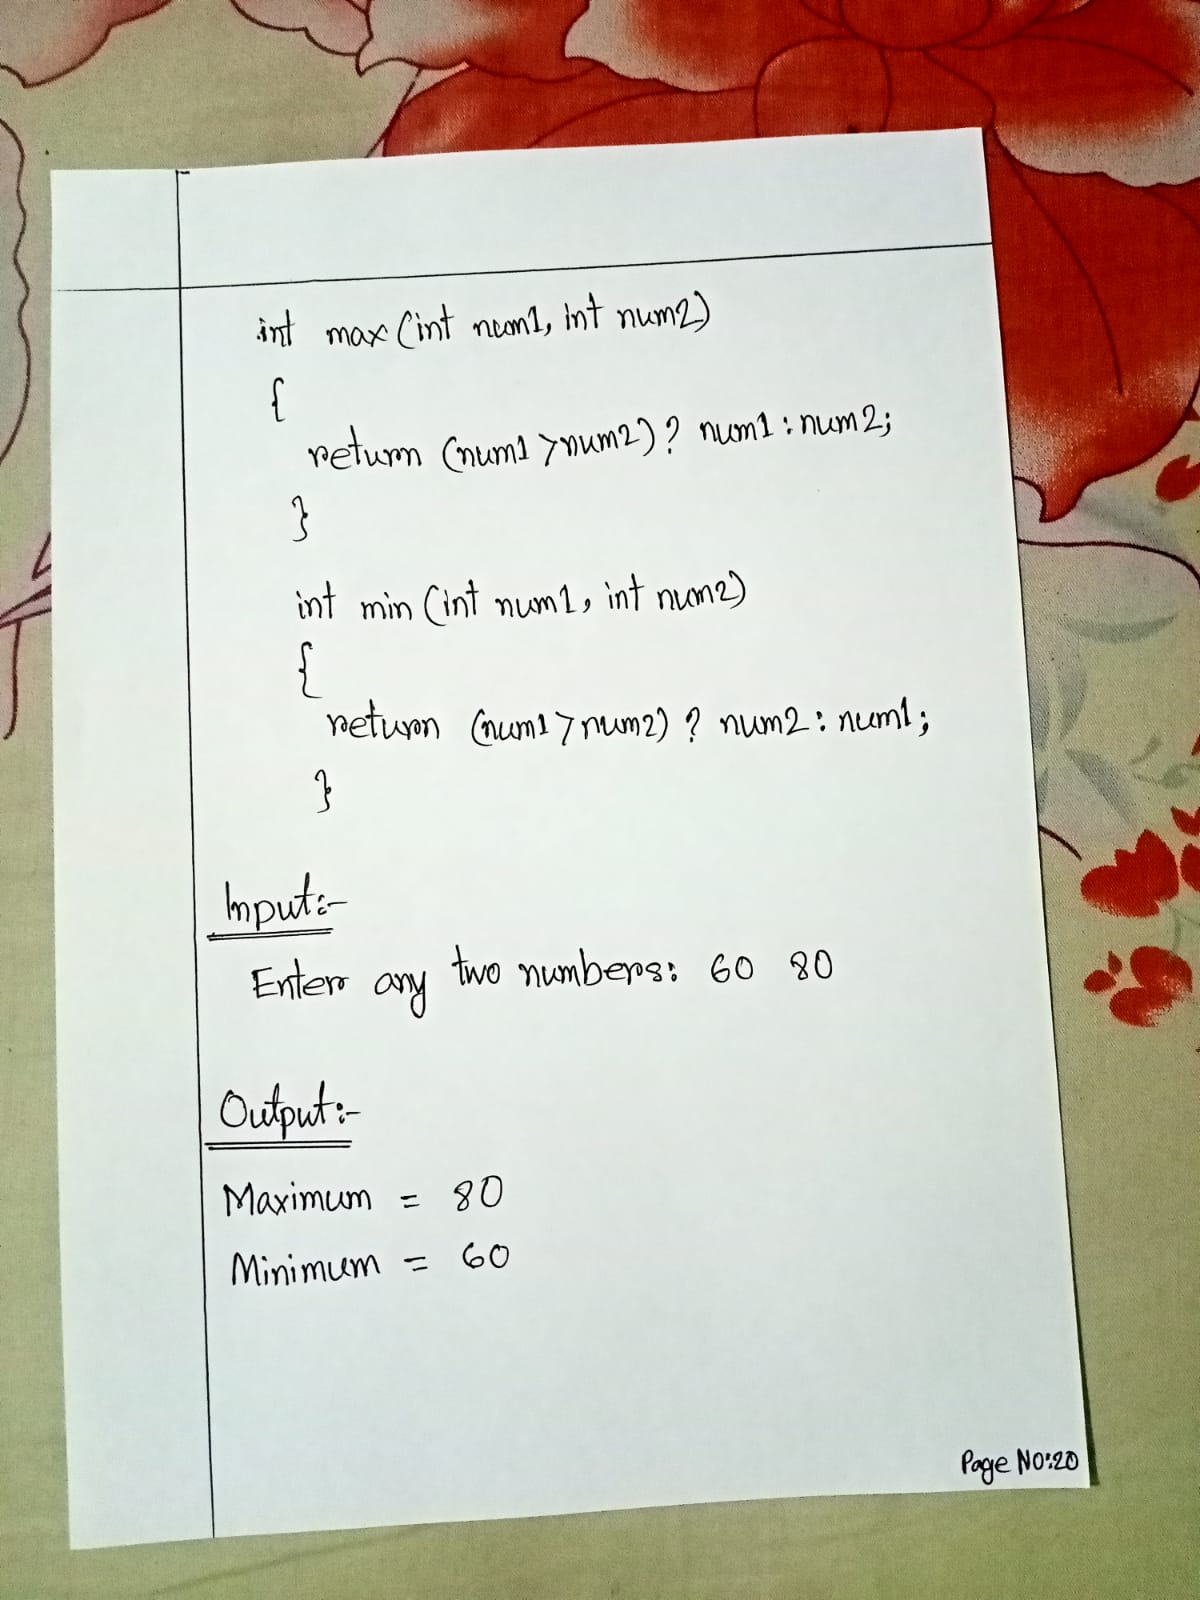 int max (int num1, int num2)
{
return (num1 >num2) ? num1 : num2;
}
int min (int num1, int num2)
{
return (num1 > num2) ? num2 : num1;
}
Input:-
Enter any two numbers: 60 80
Output:-
Maximum = 80
Minimum = 60
Page No:20